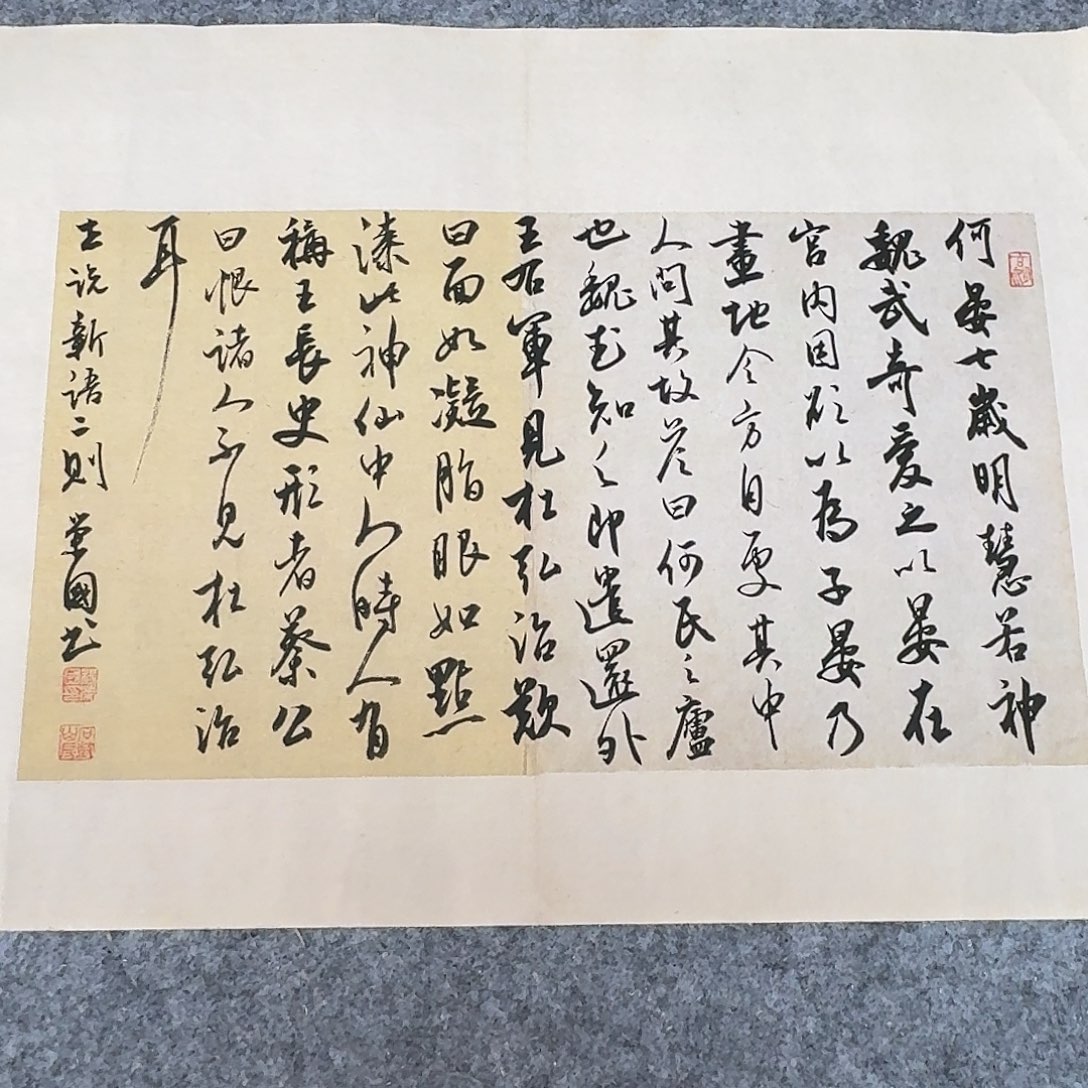 何晏七歲明慧若神
魏武奇愛之以晏在
宮內因欲以為子晏乃
畫地令方自處其中
人問其故答曰何氏之廬
也魏武知之即遣還外
王右軍見杜弘治歎
曰面如凝脂眼如點
漆此神仙中人時人有
稱王長史形者蔡公
曰恨諸人不見杜弘治
耳
世說新語二則 營國書